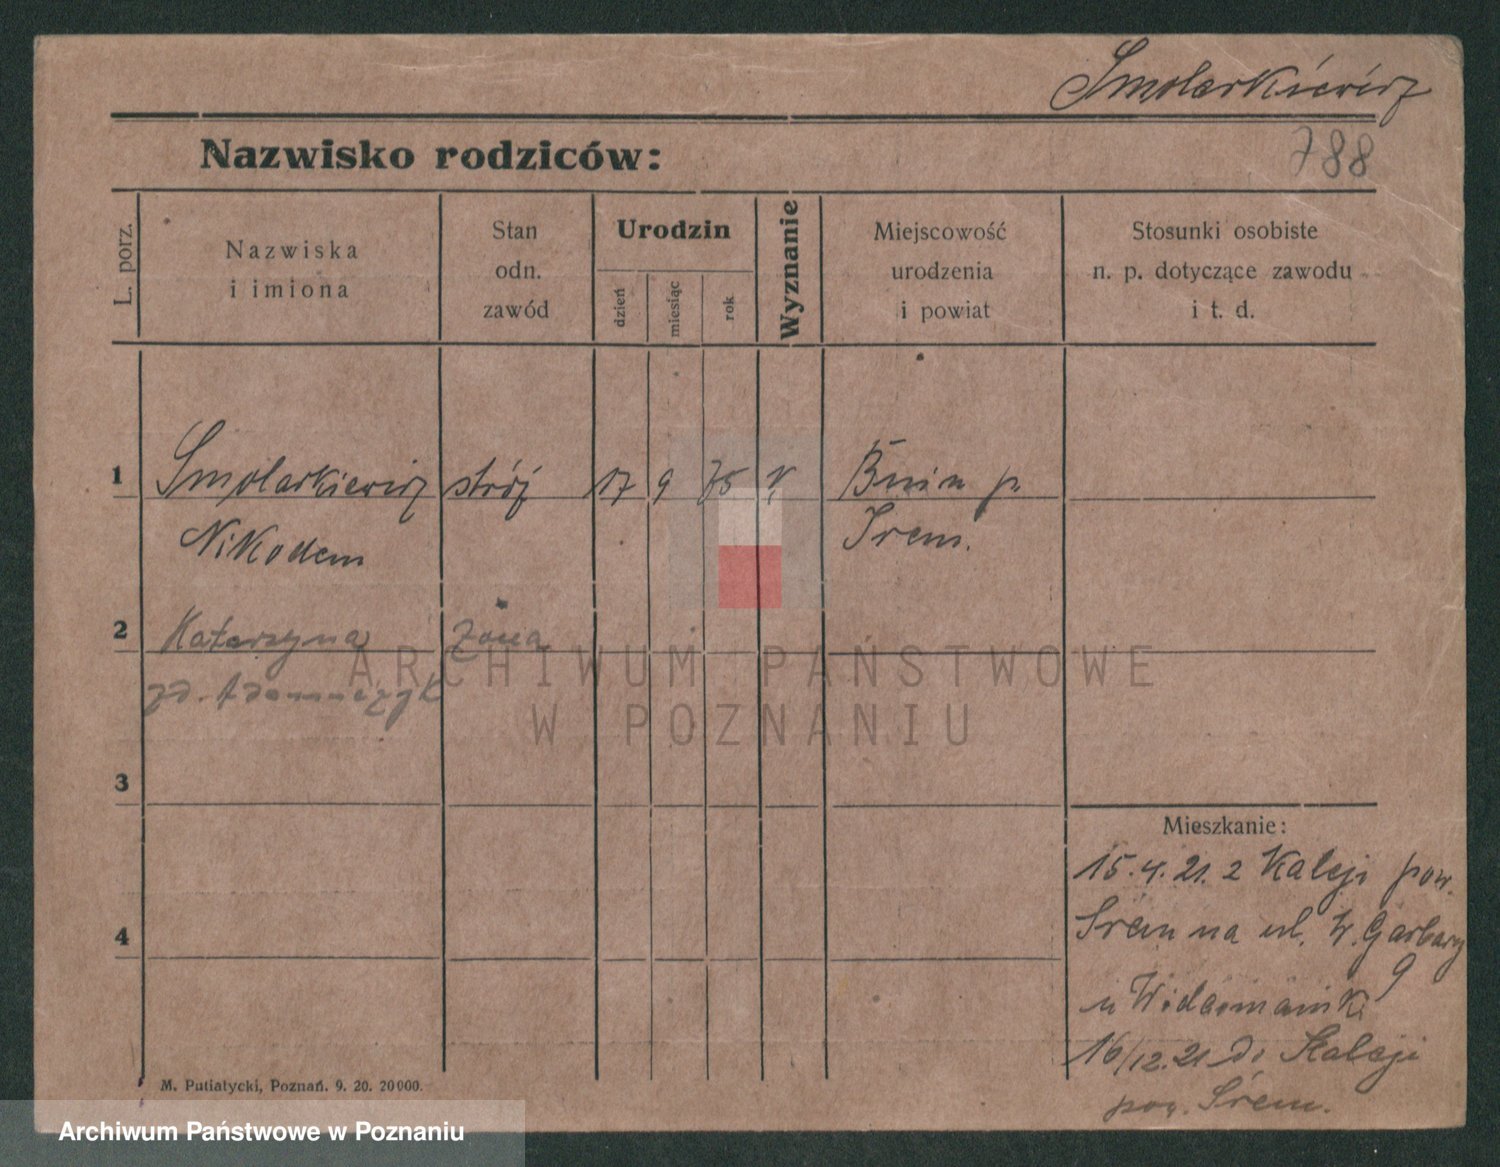 Smolarkiewicz
788
Nazwisko rodziców:
L. porz.
Nazwiska
i imiona
Stan
odn.
zawód
Urodzin
dzień
miesiąc
rok
Wyznanie
Miejscowość
urodzenia
i powiat
Stosunki osobiste
n. p. dotyczące zawodu
i t. d.
1 Smolarkiewicz stróż 17 9 75 Bnin p.
Nikodem Śrem.
2 Katarzyna żona
zd. Adamczyk
3
4
Mieszkanie:
15.4.21. z Kaleji pow.
Śrem na ul. W. Garbary
9
u
16/12.21 do Kaleji
pow. Śrem.
M. Putiatycki, Poznań. 9. 20. 20000.
ARCHIWUM PAŃSTWOWE
W POZNANIU
Archiwum Państwowe w Poznaniu